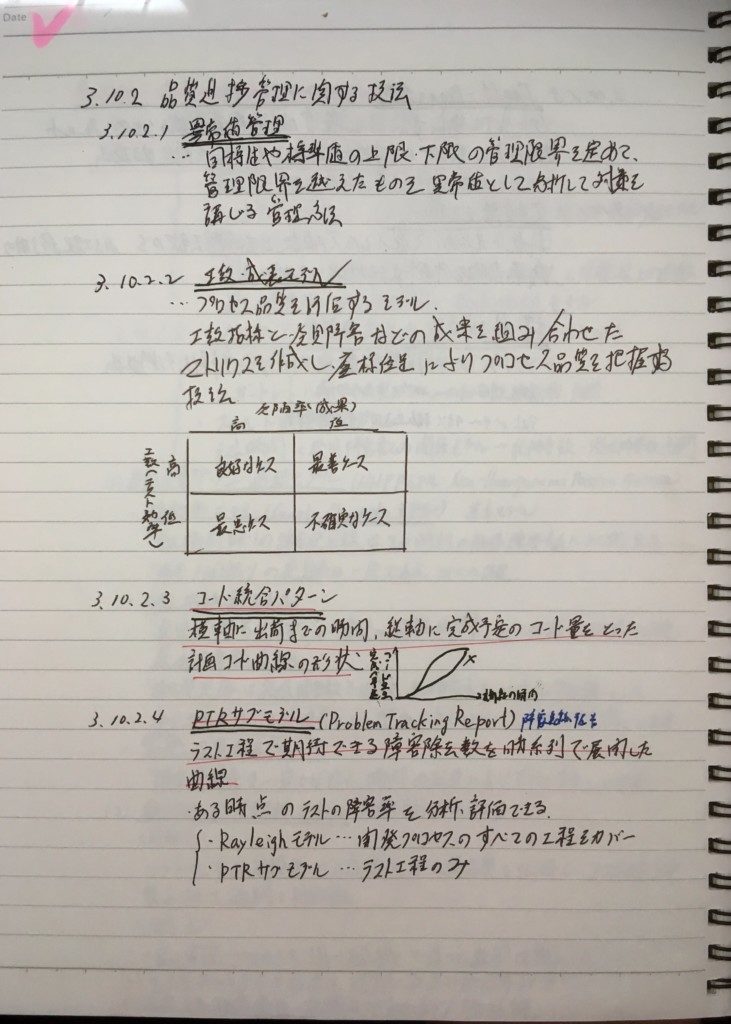 Date
3.10.2 品質進捗管理に関する技法
3.10.2.1 異常値管理
… 同種値や標準値の上限・下限の管理限界を定めて、
管理限界を越えたものを異常値として分析して対策を
講じる管理方法
3.10.2.2 工数・成果モデル
… プロセス品質を評価するモデル.
工数指標と 障害などの成果を組み合わせた
マトリクスを作成し、座標位置によりプロセス品質を把握する
技法
欠陥率(成果)
高 低
工数(テスト効率) 高 良好なケース 最善ケース
低 最悪ケース 不確実なケース
3.10.2.3 コード統合パターン
横軸に出荷までの時間, 縦軸に完成予定のコード量をとった
計画コード曲線の形状
出荷までの時間
3.10.2.4 PTRサブモデル (Problem Tracking Report)
テスト工程で期待できる障害除去数を時系列で展開した
曲線
・ある時点のテストの障害率を分析・評価できる.
・Rayleighモデル … 開発プロセスのすべての工程をカバー
・PTRサブモデル … テスト工程のみ